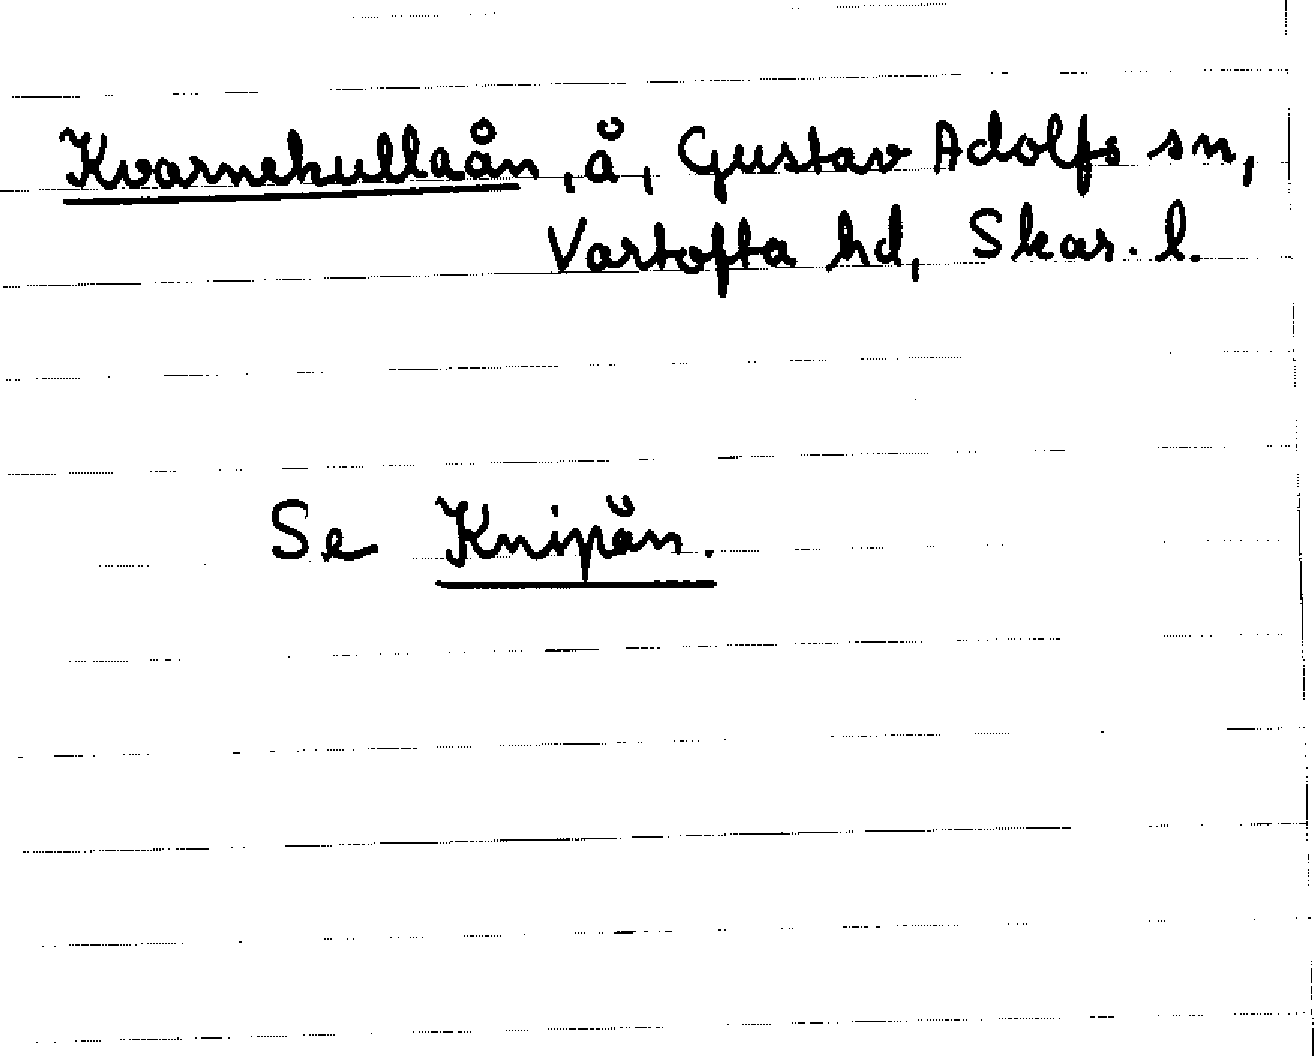 Kvarnekullaån, å, Gustav Adolfs sn,
Vartofta hd, Skar. l.
Se Knipån.